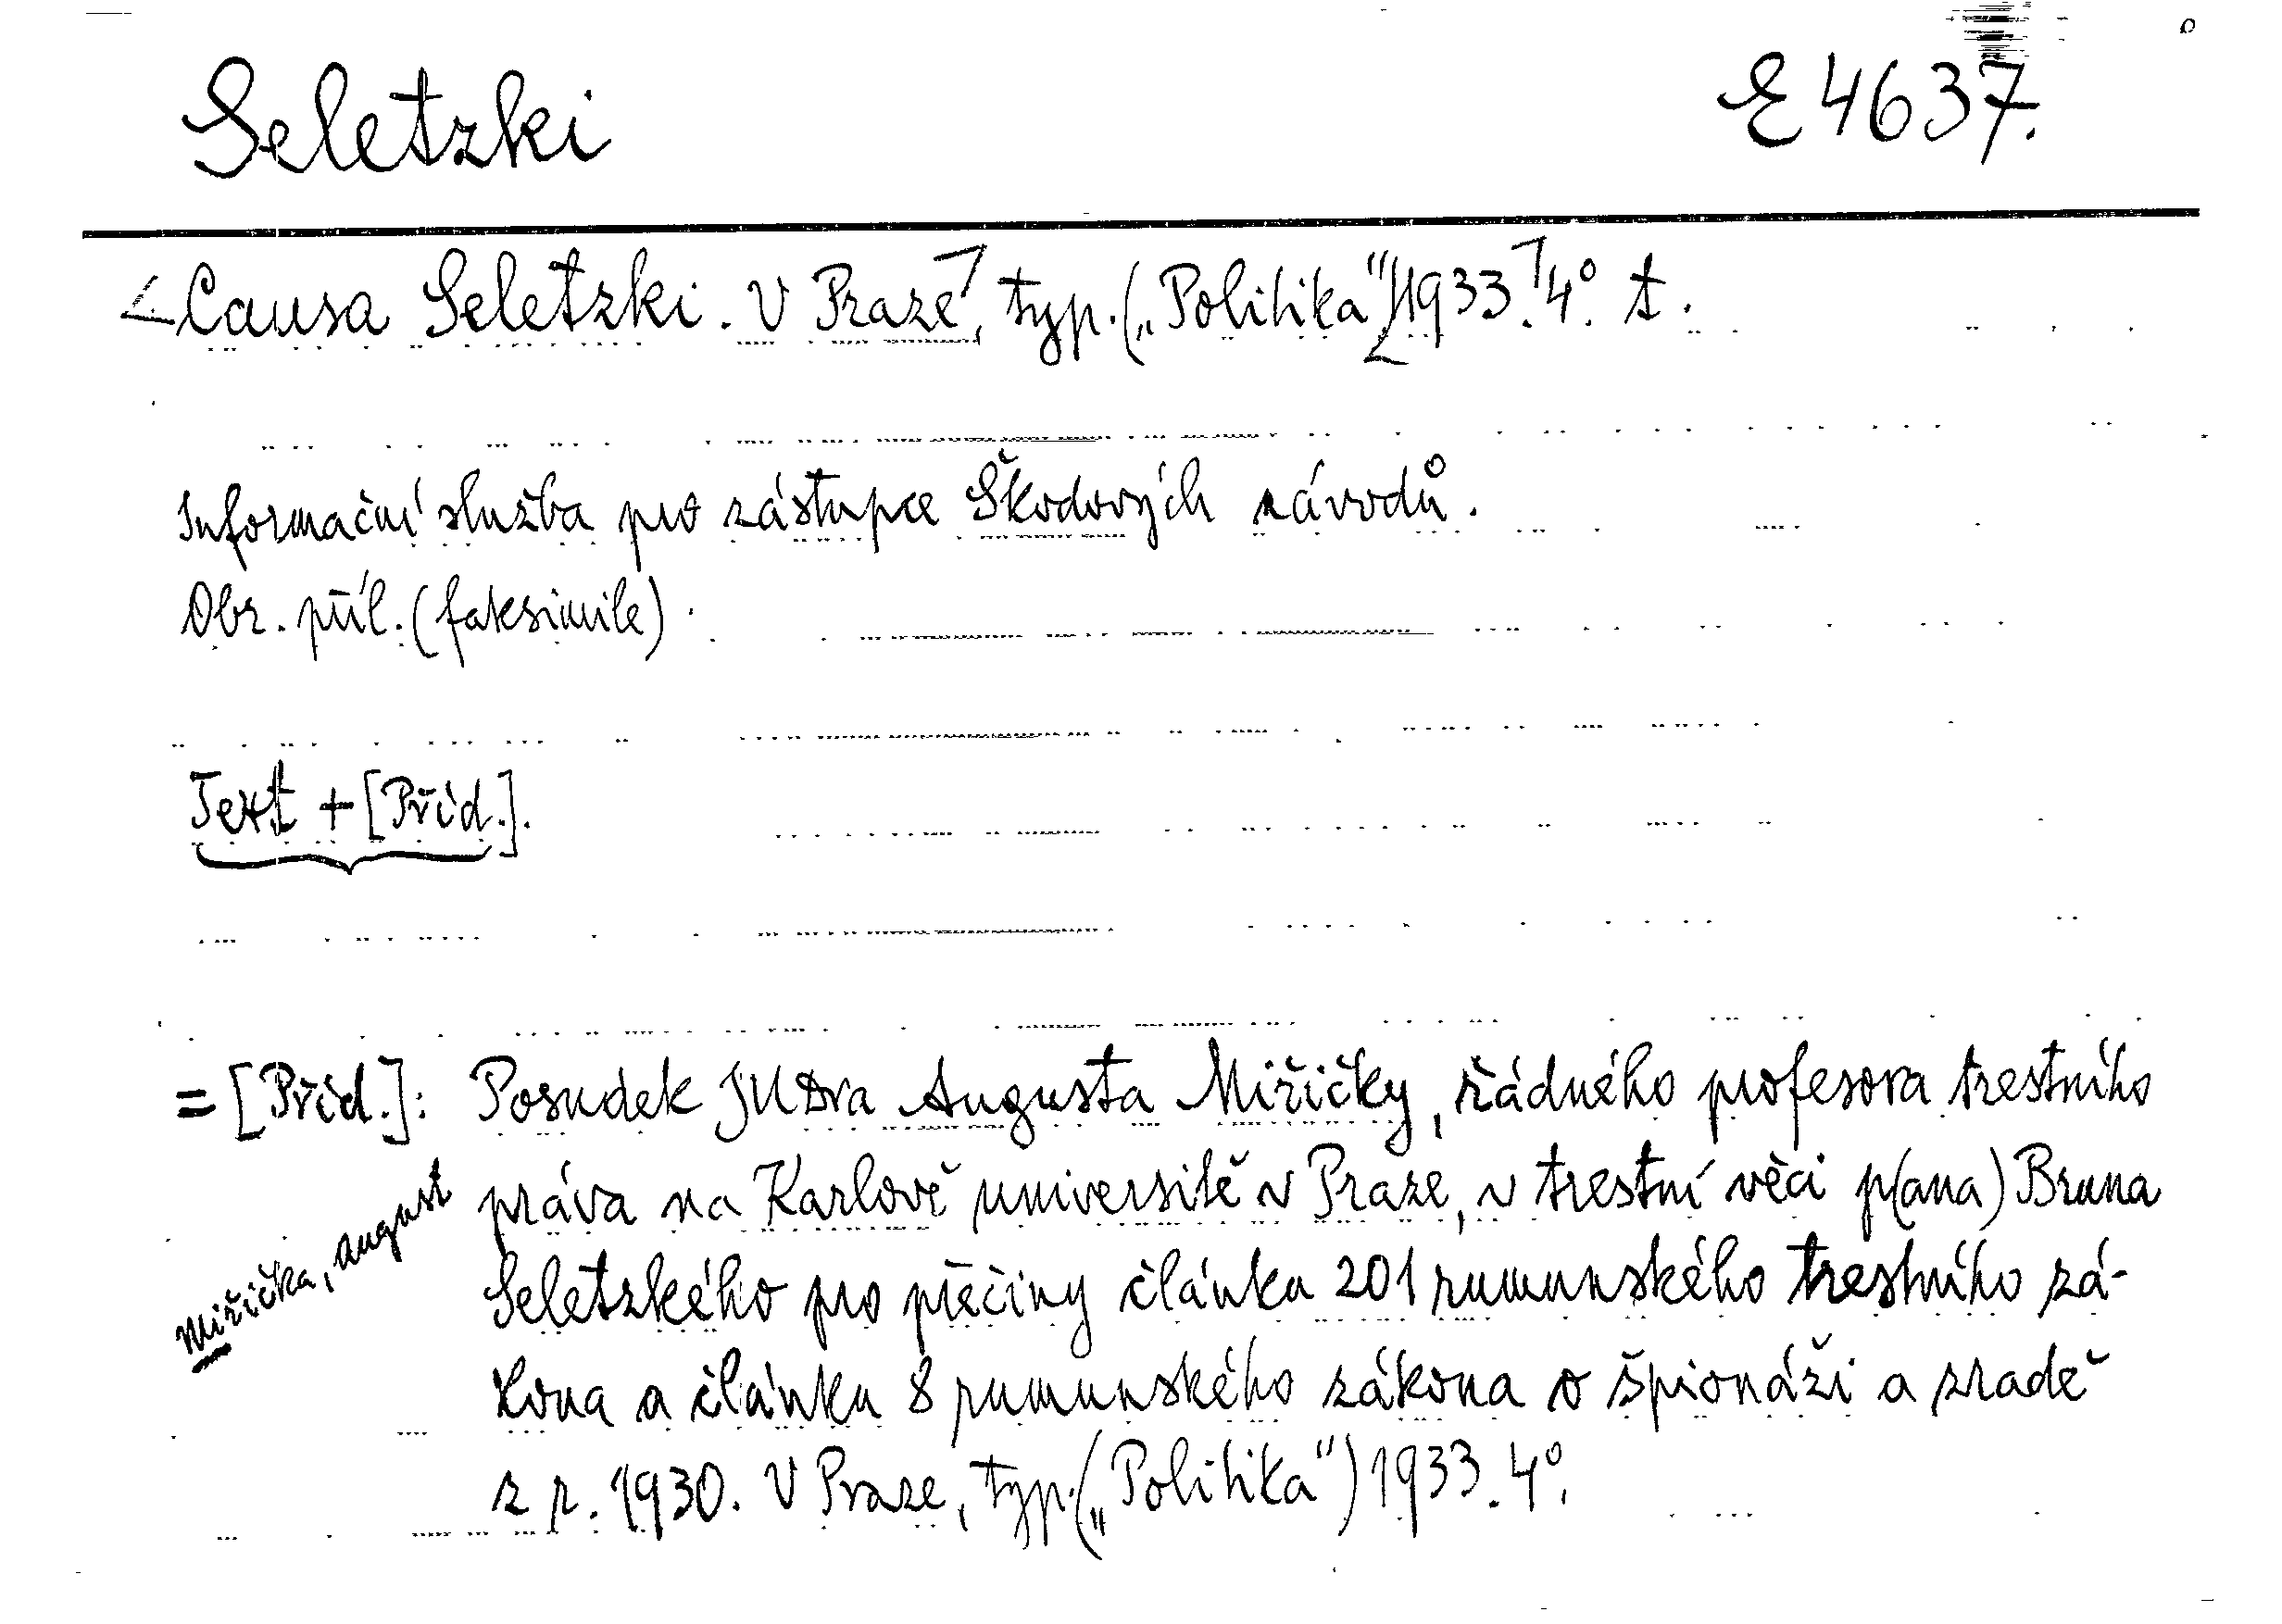 Seletzki
E 4637.
Causa Seletzki. V Praze, typ. („Politika") 1933. 4°. t.
Informační služba pro zástupce Škodových závodů.
Obr. příl. (faksimile).
Text + [Příd.].
= [Příd.]: Posudek JUDra Augusta Miřičky, řádného profesora trestního
práva na Karlově universitě v Praze, v trestní věci p(ana) Bruna
Seletzkého pro přečiny článku 201 rumunského trestního zá-
kona a článku 8 rumunského zákona o špionáži a zradě
z r. 1930. V Praze, typ. („Politika") 1933. 4°.
Miřička, August